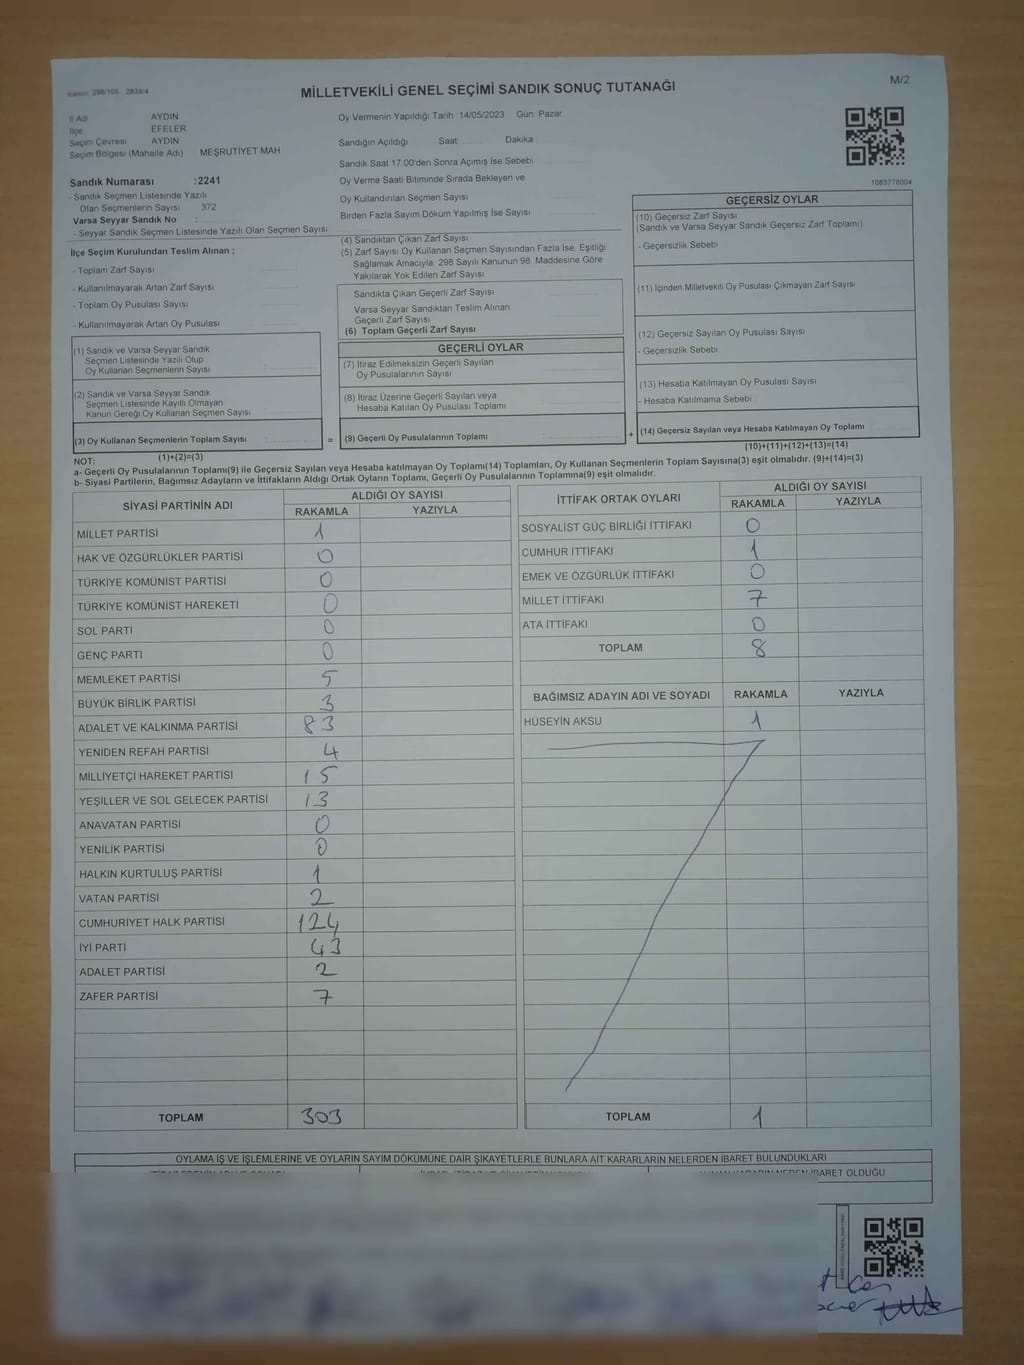 Kanun: 298/105 - 2839/4
MİLLETVEKİLİ GENEL SEÇİMİ SANDIK SONUÇ TUTANAĞI
M/2
İl Adı AYDIN
İlçe EFELER
Seçim Çevresi AYDIN
Seçim Bölgesi (Mahalle Adı) MEŞRUTİYET MAH
Sandık Numarası :2241
- Sandık Seçmen Listesinde Yazılı
Olan Seçmenlerin Sayısı 372
Varsa Seyyar Sandık No :
- Seyyar Sandık Seçmen Listesinde Yazılı Olan Seçmen Sayısı
Oy Vermenin Yapıldığı Tarih 14/05/2023 Gün Pazar
Sandığın Açıldığı Saat Dakika
Sandık Saat 17:00'den Sonra Açmış İse Sebebi
Oy Verme Saati Bitiminde Sırada Bekleyen ve
Oy Kullandırılan Seçmen Sayısı
Birden Fazla Sayım Döküm Yapılmış İse Sayısı
1083778004
İlçe Seçim Kurulundan Teslim Alınan ;
- Toplam Zarf Sayısı
- Kullanılmayarak Artan Zarf Sayısı
- Toplam Oy Pusulası Sayısı
- Kullanılmayarak Artan Oy Pusulası
(1) Sandık ve Varsa Seyyar Sandık
Seçmen Listesinde Yazılı Olup
Oy Kullanan Seçmenlerin Sayısı
(2) Sandık ve Varsa Seyyar Sandık
Seçmen Listesinde Kayıtlı Olmayan
Kanun Gereği Oy Kullanan Seçmen Sayısı
(3) Oy Kullanan Seçmenlerin Toplam Sayısı
(1)+(2)=(3)
(4) Sandıktan Çıkan Zarf Sayısı
(5) Zarf Sayısı Oy Kullanan Seçmen Sayısından Fazla İse, Eşitliği
Sağlamak Amacıyla; 298 Sayılı Kanunun 98. Maddesine Göre
Yakılarak Yok Edilen Zarf Sayısı
Sandıkta Çıkan Geçerli Zarf Sayısı
Varsa Seyyar Sandıktan Teslim Alınan
Geçerli Zarf Sayısı
(6) Toplam Geçerli Zarf Sayısı
GEÇERLİ OYLAR
(7) İtiraz Edilmeksizin Geçerli Sayılan
Oy Pusulalarının Sayısı
(8) İtiraz Üzerine Geçerli Sayılan veya
Hesaba Katılan Oy Pusulası Toplamı
= (9) Geçerli Oy Pusulalarının Toplamı
GEÇERSİZ OYLAR
(10) Geçersiz Zarf Sayısı
(Sandık ve Varsa Seyyar Sandık Geçersiz Zarf Toplamı)
- Geçersizlik Sebebi
(11) İçinden Milletvekili Oy Pusulası Çıkmayan Zarf Sayısı
(12) Geçersiz Sayılan Oy Pusulası Sayısı
- Geçersizlik Sebebi
(13) Hesaba Katılmayan Oy Pusulası Sayısı
- Hesaba Katılmama Sebebi
+ (14) Geçersiz Sayılan veya Hesaba Katılmayan Oy Toplamı
(10)+(11)+(12)+(13)=(14)
NOT:
a- Geçerli Oy Pusulalarının Toplamı(9) ile Geçersiz Sayılan veya Hesaba katılmayan Oy Toplamı(14) Toplamları, Oy Kullanan Seçmenlerin Toplam Sayısına(3) eşit olmalıdır. (9)+(14)=(3)
b- Siyasi Partilerin, Bağımsız Adayların ve İttifakların Aldığı Ortak Oyların Toplamı, Geçerli Oy Pusulalarının Toplamına(9) eşit olmalıdır.
SİYASİ PARTİNİN ADI ALDIĞI OY SAYISI
RAKAMLA YAZIYLA
MİLLET PARTİSİ 1
HAK VE ÖZGÜRLÜKLER PARTİSİ 0
TÜRKİYE KOMÜNİST PARTİSİ 0
TÜRKİYE KOMÜNİST HAREKETİ 0
SOL PARTİ 0
GENÇ PARTİ 0
MEMLEKET PARTİSİ 5
BÜYÜK BİRLİK PARTİSİ 3
ADALET VE KALKINMA PARTİSİ 83
YENİDEN REFAH PARTİSİ 4
MİLLİYETÇİ HAREKET PARTİSİ 15
YEŞİLLER VE SOL GELECEK PARTİSİ 13
ANAVATAN PARTİSİ 0
YENİLİK PARTİSİ 0
HALKIN KURTULUŞ PARTİSİ 1
VATAN PARTİSİ 2
CUMHURİYET HALK PARTİSİ 124
İYİ PARTİ 43
ADALET PARTİSİ 2
ZAFER PARTİSİ 7
TOPLAM 303
İTTİFAK ORTAK OYLARI ALDIĞI OY SAYISI
RAKAMLA YAZIYLA
SOSYALİST GÜÇ BİRLİĞİ İTTİFAKI 0
CUMHUR İTTİFAKI 1
EMEK VE ÖZGÜRLÜK İTTİFAKI 0
MİLLET İTTİFAKI 7
ATA İTTİFAKI 0
TOPLAM 8
BAĞIMSIZ ADAYIN ADI VE SOYADI RAKAMLA YAZIYLA
HÜSEYİN AKSU 1
TOPLAM 1
OYLAMA İŞ VE İŞLEMLERİNE VE OYLARIN SAYIM DÖKÜMÜNE DAİR ŞİKAYETLERLE BUNLARA AİT KARARLARIN NELERDEN İBARET BULUNDUKLARI
NEDEN İBARET OLDUĞU